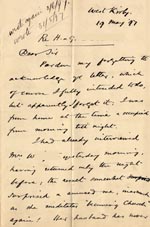 West Kirby.
19 May 97
Re H-g.
Dear Sir
Pardon my forgetting to
acknowledge yr letter, which
of course I fully intended to do,
but apparently forgot it; I was
from home at the time & occupied
from morning till night.
I had already interviewed
Mrs W. yesterday morning,
having returned only the night
before; she was somewhat
surprised & annoyed me,
as the meditates becoming church
again! Her husband has never